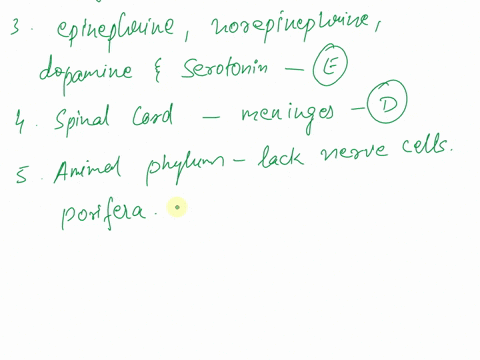 3. epinephrine, norepinephrine,
dopamine & Serotonin - E
4. Spinal Cord - meninges - D
5. Animal phylum - lack nerve cells.
porifera.